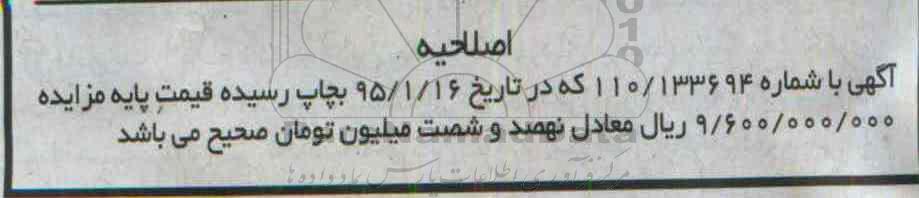 اصلاحیه
آگهی با شماره ۱۱۰/۱۳۳۶۹۴ که در تاریخ ۹۵/۱/۱۶ بچاپ رسیده قیمت پایه مزایده
۹/۶۰۰/۰۰۰/۰۰۰ ریال معادل نهصد و شصت میلیون تومان صحیح می باشد
مرکز فرآوری اطلاعات پارس نماد داده ها